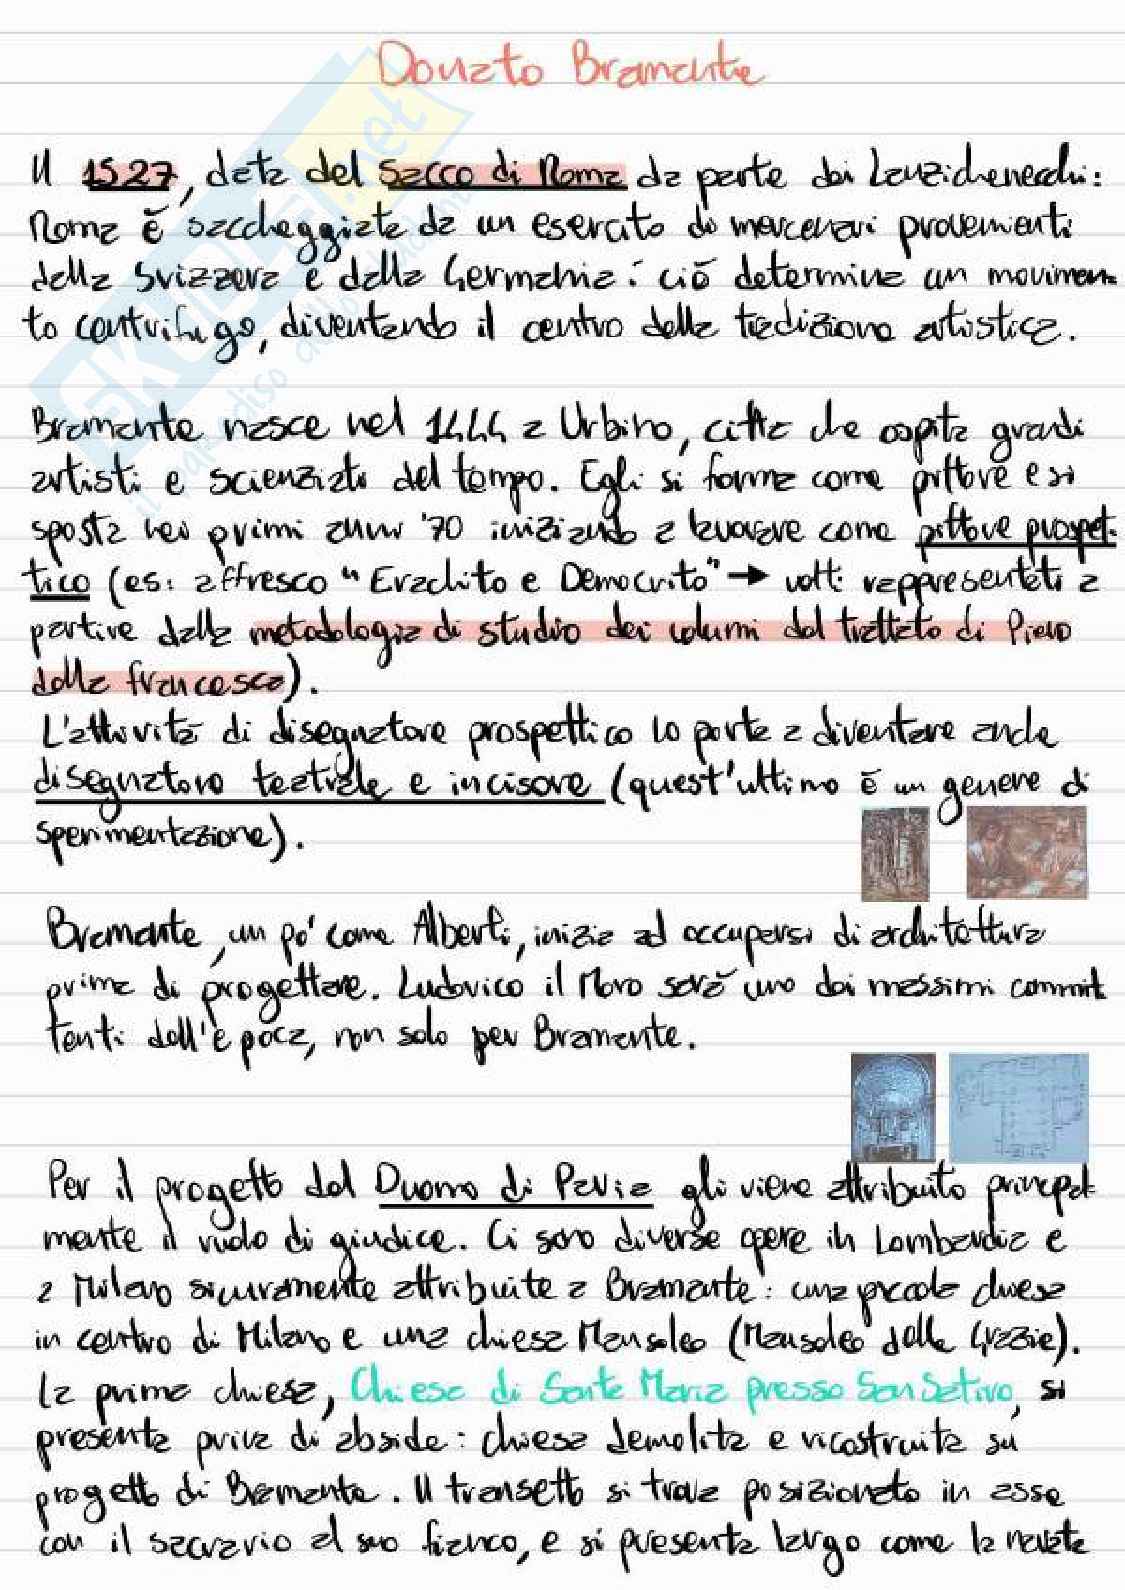 Donato Bramante
Il 1527, data del Sacco di Roma da parte dei Lanzichenecchi:
Roma è saccheggiata da un esercito di mercenari provenienti
dalla Svizzera e dalla Germania: ciò determina un movimen
to centrifugo, diventando il centro della tradizione artistica.
Bramante nasce nel 1444 a Urbino, città che ospita grandi
artisti e scienziati del tempo. Egli si forma come pittore e si
sposta nei primi anni '70 iniziando a lavorare come pittore prospet-
tico (es: affresco "Eraclito e Democrito" → volti rappresentati a
partire dalla metodologia di studio dei volumi dal trattato di Piero
della Francesca).
L'attività di disegnatore prospettico lo porta a diventare anche
disegnatore teatrale e incisore (quest'ultimo è un genere di
sperimentazione).
Bramante, un po' come Alberti, inizia ad occuparsi di architettura
prima di progettare. Ludovico il Moro sarà uno dei massimi commit
tenti dell'epoca, non solo per Bramante.
Per il progetto del Duomo di Pavia gli viene attribuito principal-
mente il ruolo di giudice. Ci sono diverse opere in Lombardia e
a Milano sicuramente attribuite a Bramante: una piccola chiesa
in centro di Milano e una chiesa Mausoleo (Mausoleo delle Grazie).
La prima chiesa, Chiesa di Santa Maria presso San Satiro, si
presenta priva di abside: chiesa demolita e ricostruita su
progetto di Bramante. Il transetto si trova posizionato in asse
con il sacrario al suo fianco, e si presenta largo come la navata
SKUOLA.net
il paradiso dello